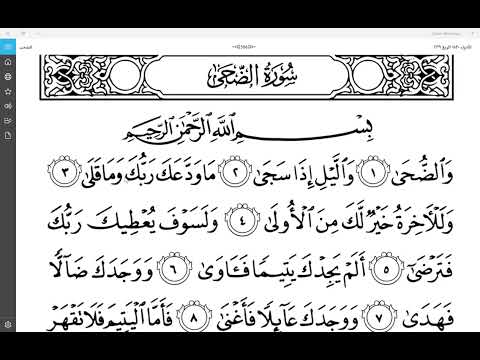 سُورَةُ الضُّحَىٰ
بِسْمِ اللَّهِ الرَّحْمَٰنِ الرَّحِيمِ
وَالضُّحَىٰ ١ وَاللَّيْلِ إِذَا سَجَىٰ ٢ مَا وَدَّعَكَ رَبُّكَ وَمَا قَلَىٰ ٣
وَلَلْآخِرَةُ خَيْرٌ لَّكَ مِنَ الْأُولَىٰ ٤ وَلَسَوْفَ يُعْطِيكَ رَبُّكَ
فَتَرْضَىٰ ٥ أَلَمْ يَجِدْكَ يَتِيمًا فَـَٔاوَىٰ ٦ وَوَجَدَكَ ضَآلًّا
فَهَدَىٰ ٧ وَوَجَدَكَ عَآئِلًا فَأَغْنَىٰ ٨ فَأَمَّا الْيَتِيمَ فَلَا تَقْهَرْ